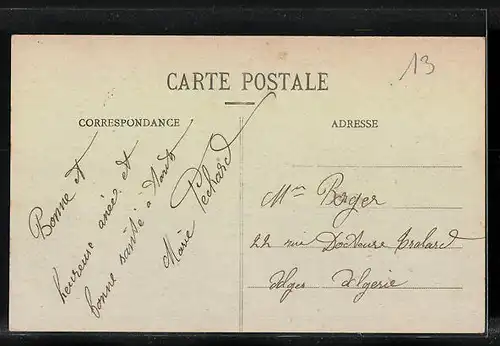 13
CARTE POSTALE
CORRESPONDANCE
Bonne et
heureuse anée et
bonne santé a tout
Marie Pechard
ADRESSE
Mme Berger
22 rue Docteure Tralard
Alger Algerie